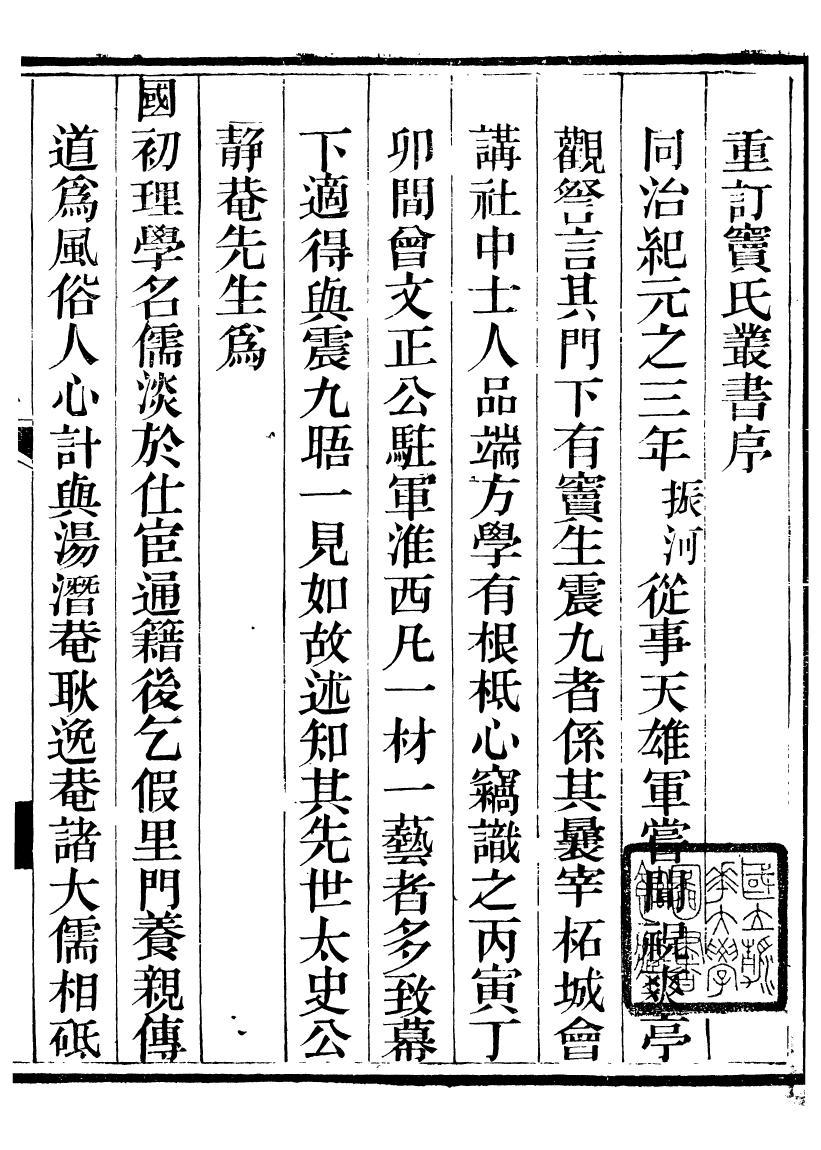 重訂竇氏叢書序
同治紀元之三年振河從事天雄軍嘗聞祝爽亭
觀詧言其門下有竇生震九者係其曩宰柘城會
講社中士人品端方學有根柢心竊識之丙寅丁
卯間曾文正公駐軍淮西凡一材一藝者多致幕
下適得與震九晤一見如故述知其先世太史公
靜菴先生為
國初理學名儒淡於仕宦通籍後乞假里門養親傳
道為風俗人心計與湯潛菴耿逸菴諸大儒相砥
國立
大學